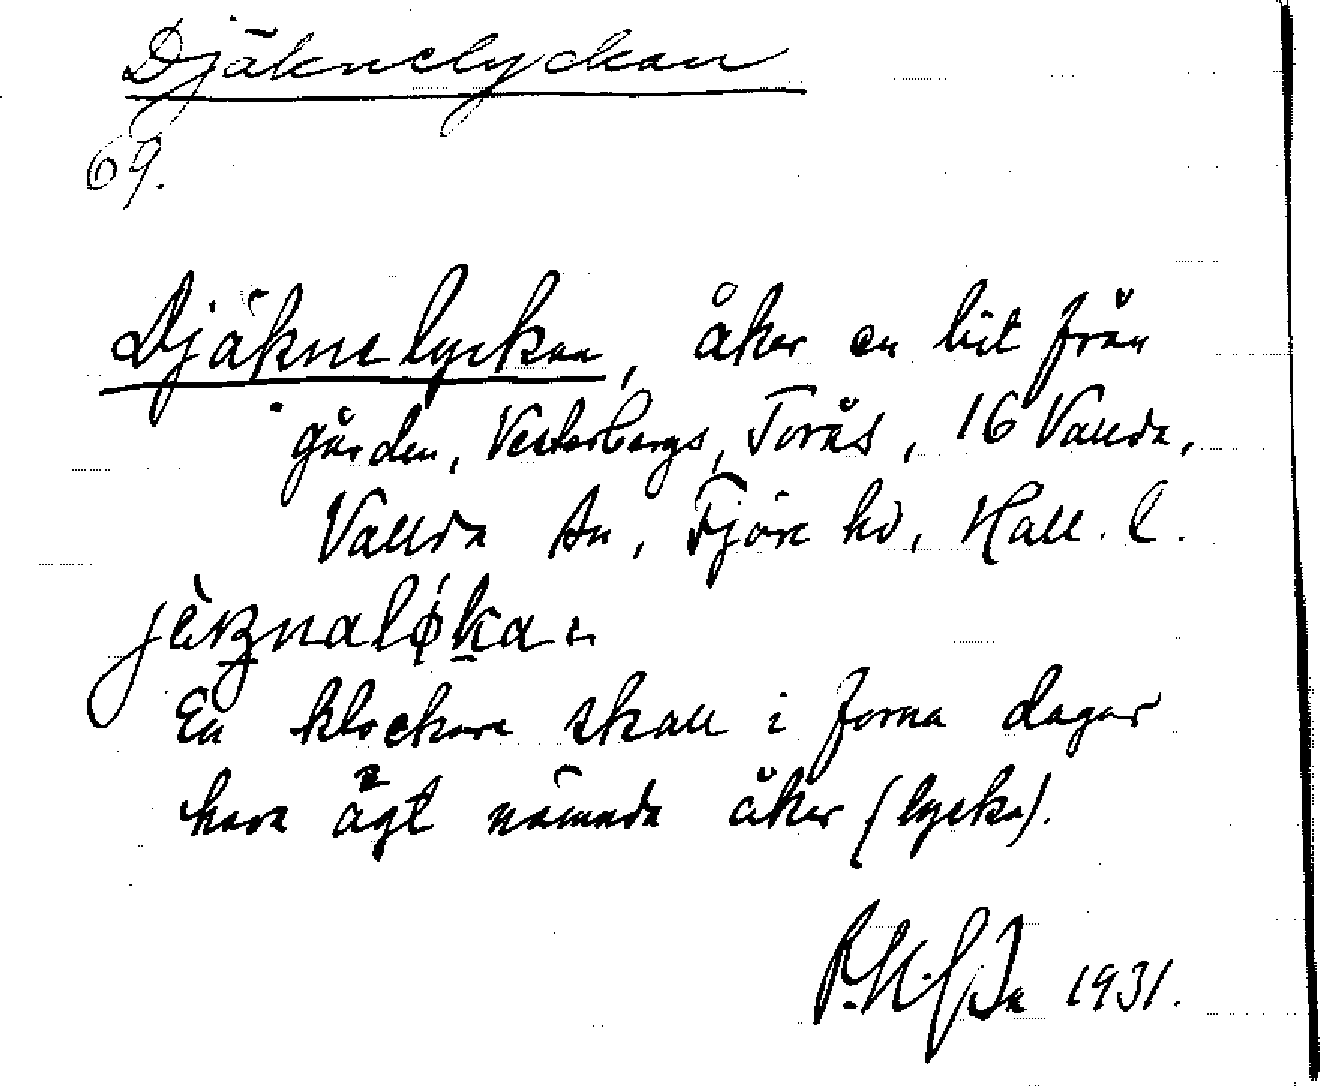 Djäknelyckan
69.
Djäknelyckan, åker en bit från
gården, Vesterbergs, Torås, 16 Vallda,
Vallda sn, Fjäre hd, Hall. l.
En klockare skall i forna dagar
hava ägt nämnda åker (lycka).
1931.